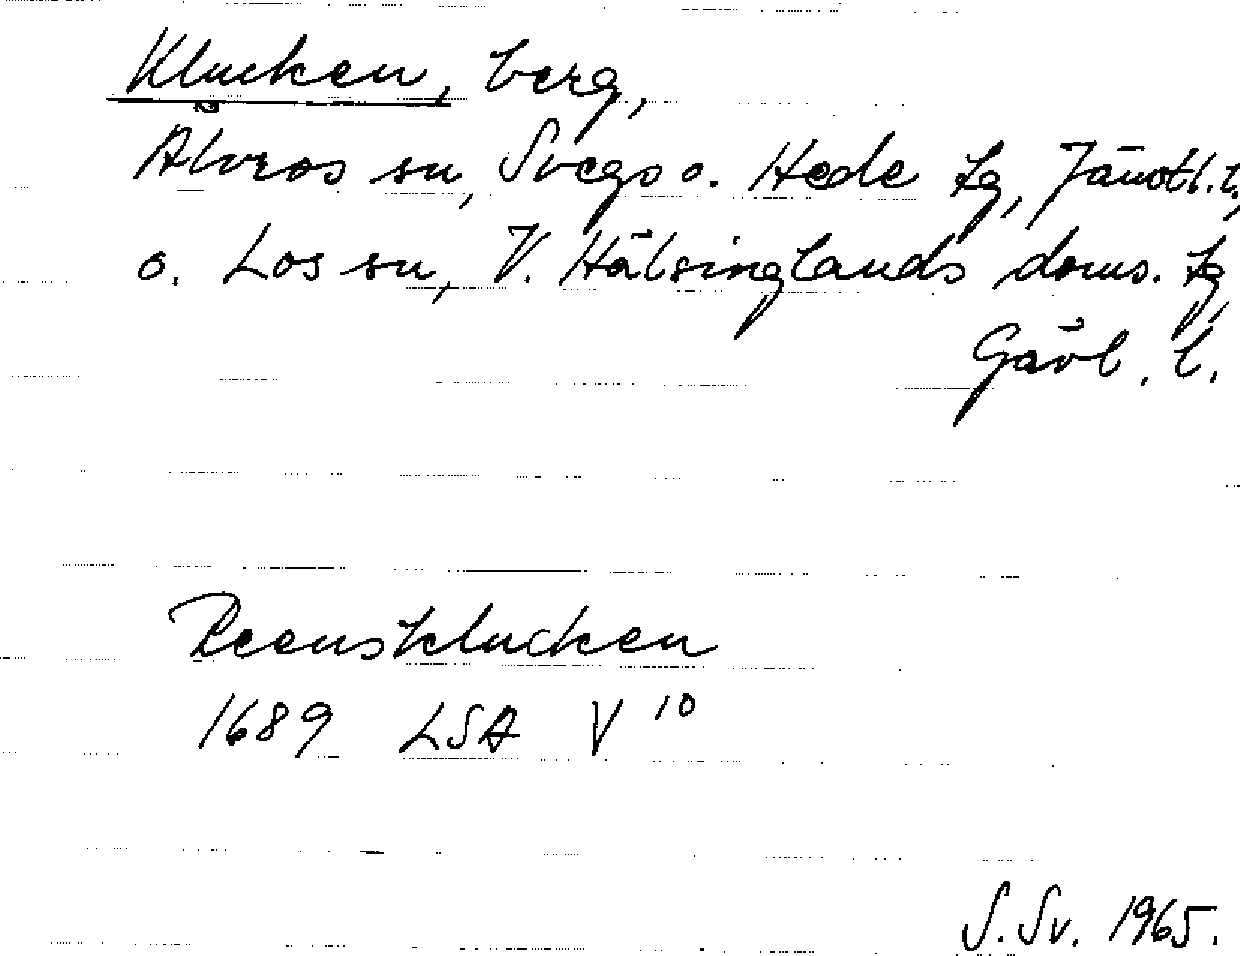 Klucken, berg,
Älvros sn, Svegs o. Hede tg, Jämtl. l.,
o. Los sn, V. Hälsinglands doms. tg,
Gävl. l.
Reensklucken
1689 LSA V 10
S. Sv. 1965.